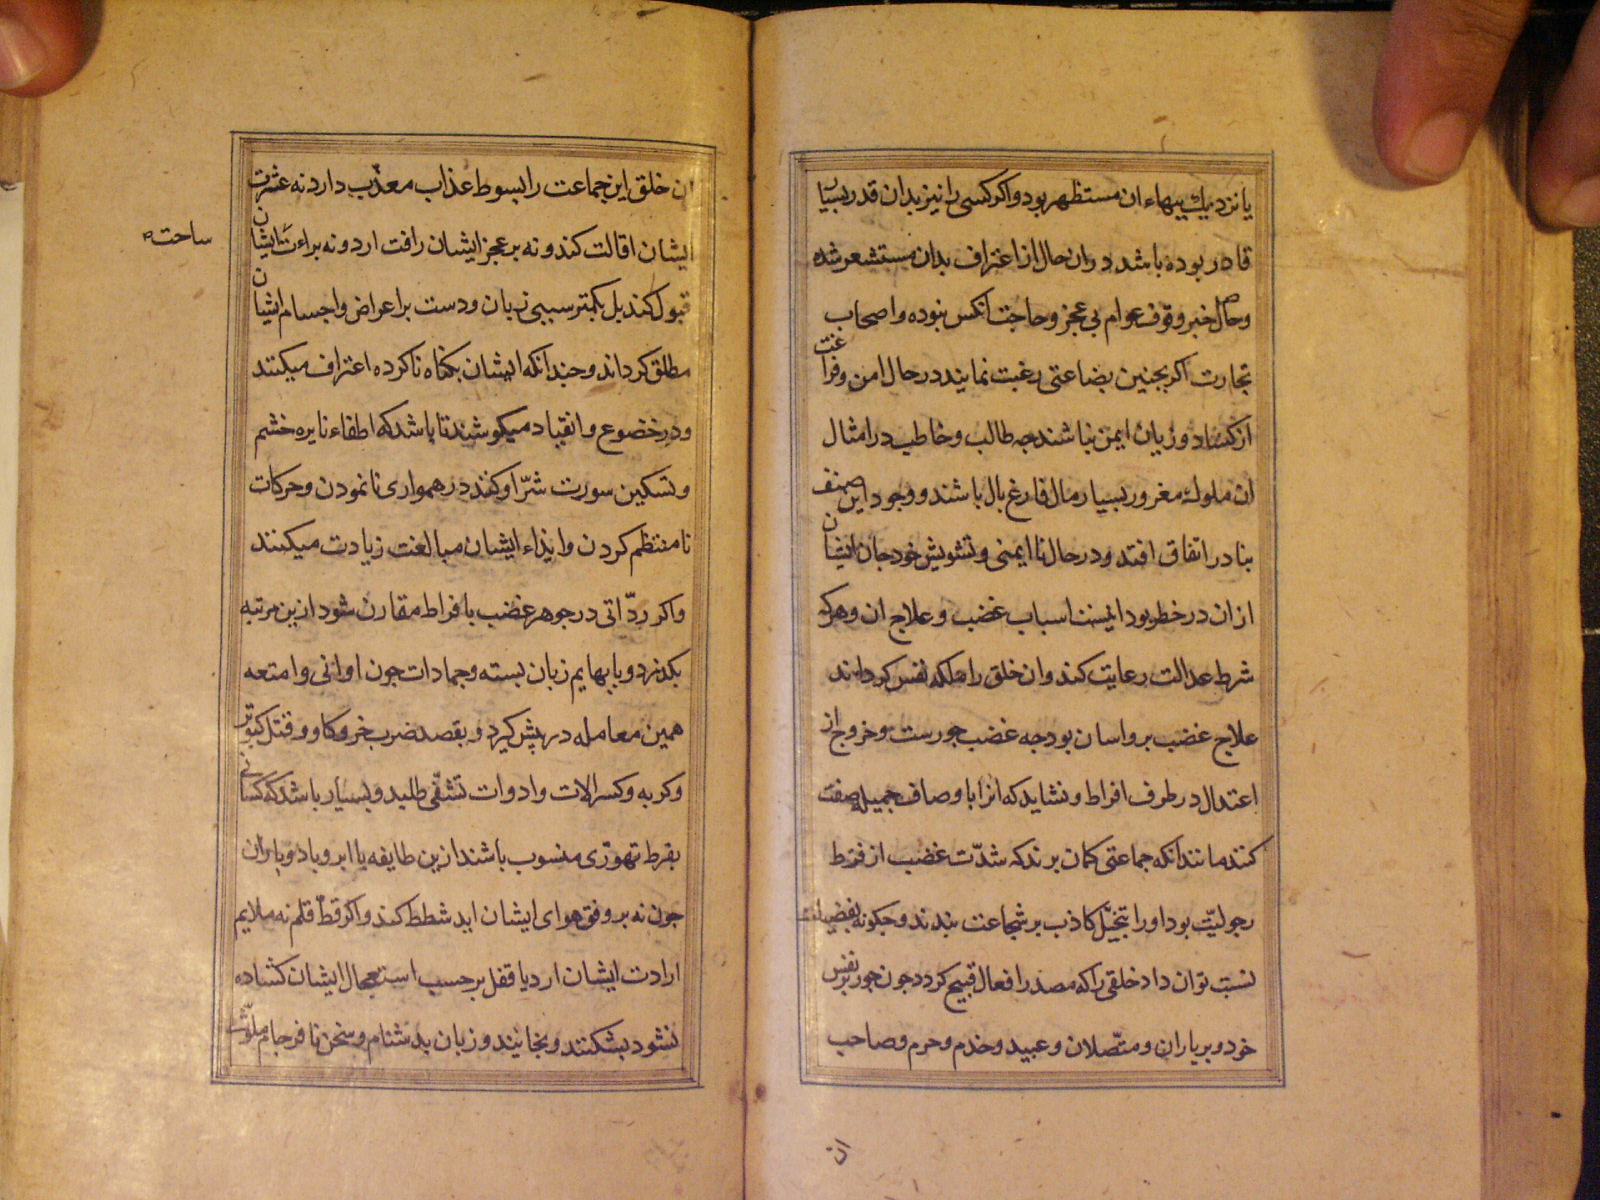 یا نزدیك ببهاء ان مستظهر بود و اکر کسی را نیز بدان قدر بسیار
قادر بوده باشد دران حال از اعتراف بدان مستشعر شده
وحال خبر وقوف عوام بی عجز وحاجت انکس نبوده واصحاب
تجارت اکر بجنین بضاعتی رغبت نمایند در حال امن وفراغت
از کساد و زیان ایمن نباشند جه طالب وخاطب در امثال
ان ملوك مغرور بسیار مال فارغ بال باشند و وجود این صنف
بنادر اتفاق افتد و در حال نا ایمنی وتشویش خود جان ایشان
ازان در خطر بود اینست اسباب غضب و علاج ان وهرکه
شرط عدالت رعایت کند وان خلق را ملکه نفس کرداند
علاج غضب برو اسان بود جه غضب جورست وخروج از
اعتدال در طرف افراط ونشاید که انرا باوصاف جمیله صفت
کنند مانند انکه جماعتی کمان برند که شدّت غضب از فرط
رجولیّت بود و اورا بتخیّل کاذب بر شجاعت بندند وجکونه بفضیلت
نسبت توان داد خلقی را که مصدر افعال قبیح کردد جون جور بر نفس
خود و بر یاران ومتّصلان وعبید وخدم وحرم وصاحب
ان
ان خلق این جماعت را بسوط عذاب معذّب دارد نه عثرت
ایشان اقالت کند و نه بر عجز ایشان رافت ارد و نه براءت ایشان
ساحت
قبول کند بل بکمتر سببی زبان ودست بر اعراض و اجسام ایشان
مطلق کرداند و جندانکه ایشان بکناه ناکرده اعتراف میکنند
و در خضوع و انقیاد میکوشند تا باشد که اطفاء نایره خشم
وتسکین سورت شرّ او کنند در همواری نانمودن وحرکات
نامنتظم کردن وایذاء ایشان مبالغت زیادت میکنند
واکر ردّاتی در جوهر غضب با فراط مقارن شود ازین مرتبه
بکذرد و با بهایم زبان بسته وجمادات جون اوانی وامتعه
همین معامله در پیش کیرد و بقصد ضرب خر و کاو و قتل کبوتر
وکربه وکسر الات و ادوات تشفّی طلبد و بسیار باشد که کسانی
بفرط تهوّری منسوب باشند ازین طایفه با ابر و باد و باران
جون نه بر وفق هوای ایشان اید شطط کنند و اکر قطّ قلم نه ملایم
ارادت ایشان ارد یا قفل بر حسب استعجال ایشان کشاده
نشود بشکنند وبخایند و زبان بدشنام وسخن نافرجام ملوّث